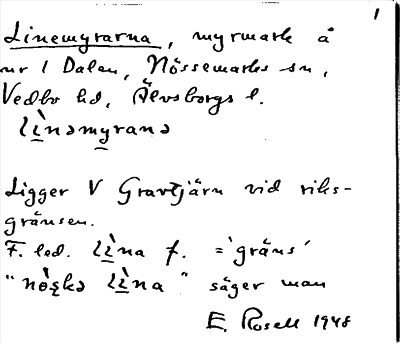 1
Linemyrarna, myrmark å
nr 1 Dalen, Nössemarks sn,
Vedbo hd, Älvsborgs l.
lìnəmyranə
Ligger V Gravtjärn vid riks-
gränsen.
F. led. lìna f. = 'gräns'
" lìna" säger man
E. Rosell 1948